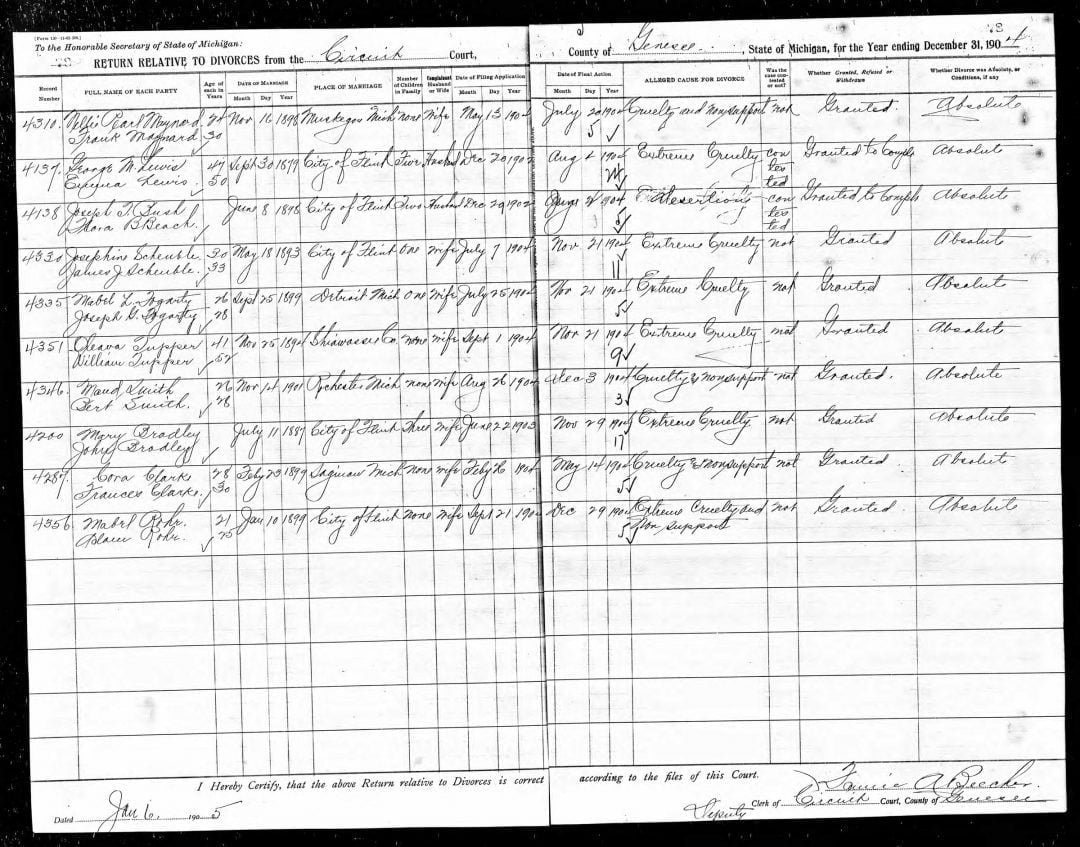 [Form 130-11-03-50M.]
To the Honorable Secretary of State of Michigan:
RETURN RELATIVE TO DIVORCES from the Circuit Court, County of Genesee State of Michigan, for the Year ending December 31, 1904
Record Number FULL NAME OF EACH PARTY Age of each in Years DATE OF MARRIAGE Month Day Year PLACE OF MARRIAGE Number of Children in Family Complainant Husband or Wife Date of Filing Application Month Day Year Date of Final Action Month Day Year ALLEGED CAUSE FOR DIVORCE Was the case contested or not? Whether Granted, Refused or Withdrawn Whether Divorce was Absolute, or Conditions, if any
4310. Pearl Maynard 24 Nov 16 1898 Muskegon Mich none Wife May 13 1904 July 20 1904 Cruelty and nonsupport not Granted. Absolute
Frank Maynard 30 5 ✓
4137. George M. Lewis 47 Sept 30 1879 City of Flint Five Husband Dec 20 1902 Aug 4 1904 Extreme Cruelty con Granted to Compl Absolute
Lewis. 50 24 tes
ted
4138 Joseph T. Bush June 8 1898 City of Flint Two Husband Dec 29 1902 1904 Desertion con Granted to Compl Absolute
Flora B. Beach. 5 tes
ted
4330 Josephine Scheuble. 30 May 18 1893 City of Flint One Wife July 7 1904 Nov 21 1904 Extreme Cruelty not Granted Absolute
James J Scheuble. 33 11
4335 Mabel L. Fogarty 26 Sept 25 1899 Detroit Mich One Wife July 25 1904 Nov 21 1904 Extreme Cruelty not Granted Absolute
Joseph G. Fogarty 28 5
4351 Tupper 41 Nov 25 1894 Shiawassee Co. none Wife Sept 1 1904 Nov 21 1904 Extreme Cruelty not Granted Absolute
William Tupper 52 9
4346. Maud Smith 26 Nov 14 1901 Rochester Mich none Wife Aug 26 1904 Dec 3 1904 Cruelty & nonsupport not Granted. Absolute
Bert Smith. 28 3
4200 Mary Bradley July 11 1887 City of Flint Three Wife June 22 1903 Nov 29 1904 Extreme Cruelty. not Granted Absolute
John Bradley 17
4287. Cora Clarks 28 Feby 23 1899 Saginaw Mich none Wife Feby 1904 May 14 1904 Cruelty & nonsupport not Granted. Absolute
Frances Clarks. 30 5
4356. Mabel Rohr. 21 Jan 10 1899 City of Flint None Wife Sept 21 1904 Dec 29 1904 Extreme Cruelty and not Granted. Absolute
Adam Rohr. 25 5 Non support
I Hereby Certify, that the above Return relative to Divorces is correct according to the files of this Court.
A. Beecher.
Dated Jan 6. 1905 Deputy Clerk of Circuit Court, County of Genesee